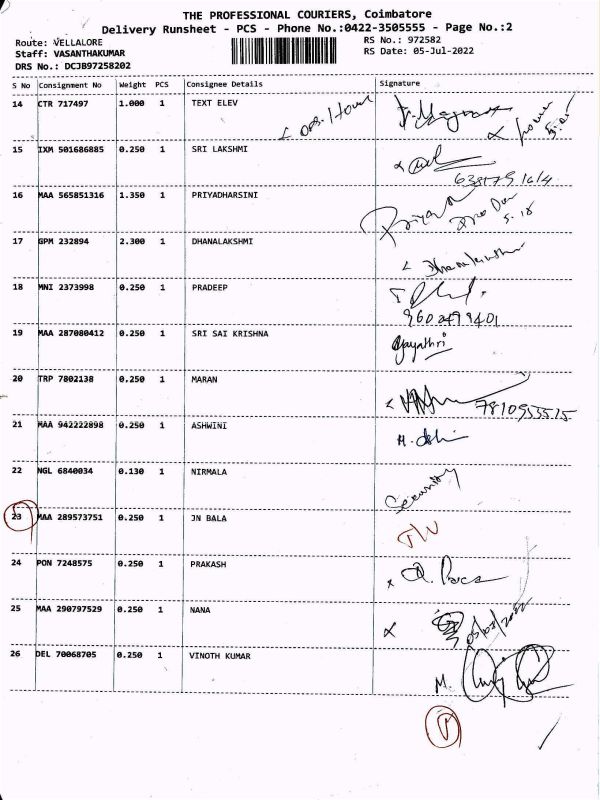 THE PROFESSIONAL COURIERS, Coimbatore
Delivery Runsheet - PCS - Phone No.:0422-3505555 - Page No.:2
Route: VELLALORE
RS No.: 972582
Staff: VASANTHAKUMAR
RS Date: 05-Jul-2022
DRS No.: DCJB97258202
S No Consignment No Weight PCS Consignee Details Signature
14 CTR 717497 1.000 1 TEXT ELEV
15 IXM 501686885 0.250 1 SRI LAKSHMI
16 MAA 565851316 1.350 1 PRIYADHARSINI
17 GPM 232894 2.300 1 DHANALAKSHMI
18 MNI 2373998 0.250 1 PRADEEP
19 MAA 287080412 0.250 1 SRI SAI KRISHNA
Gayathri
20 TRP 7802138 0.250 1 MARAN
21 MAA 942222898 0.250 1 ASHWINI
22 NGL 6840034 0.130 1 NIRMALA
Security
23 MAA 289573751 0.250 1 JN BALA
24 PON 7248575 0.250 1 PRAKASH
25 MAA 290797529 0.250 1 NANA
26 DEL 70068705 0.250 1 VINOTH KUMAR